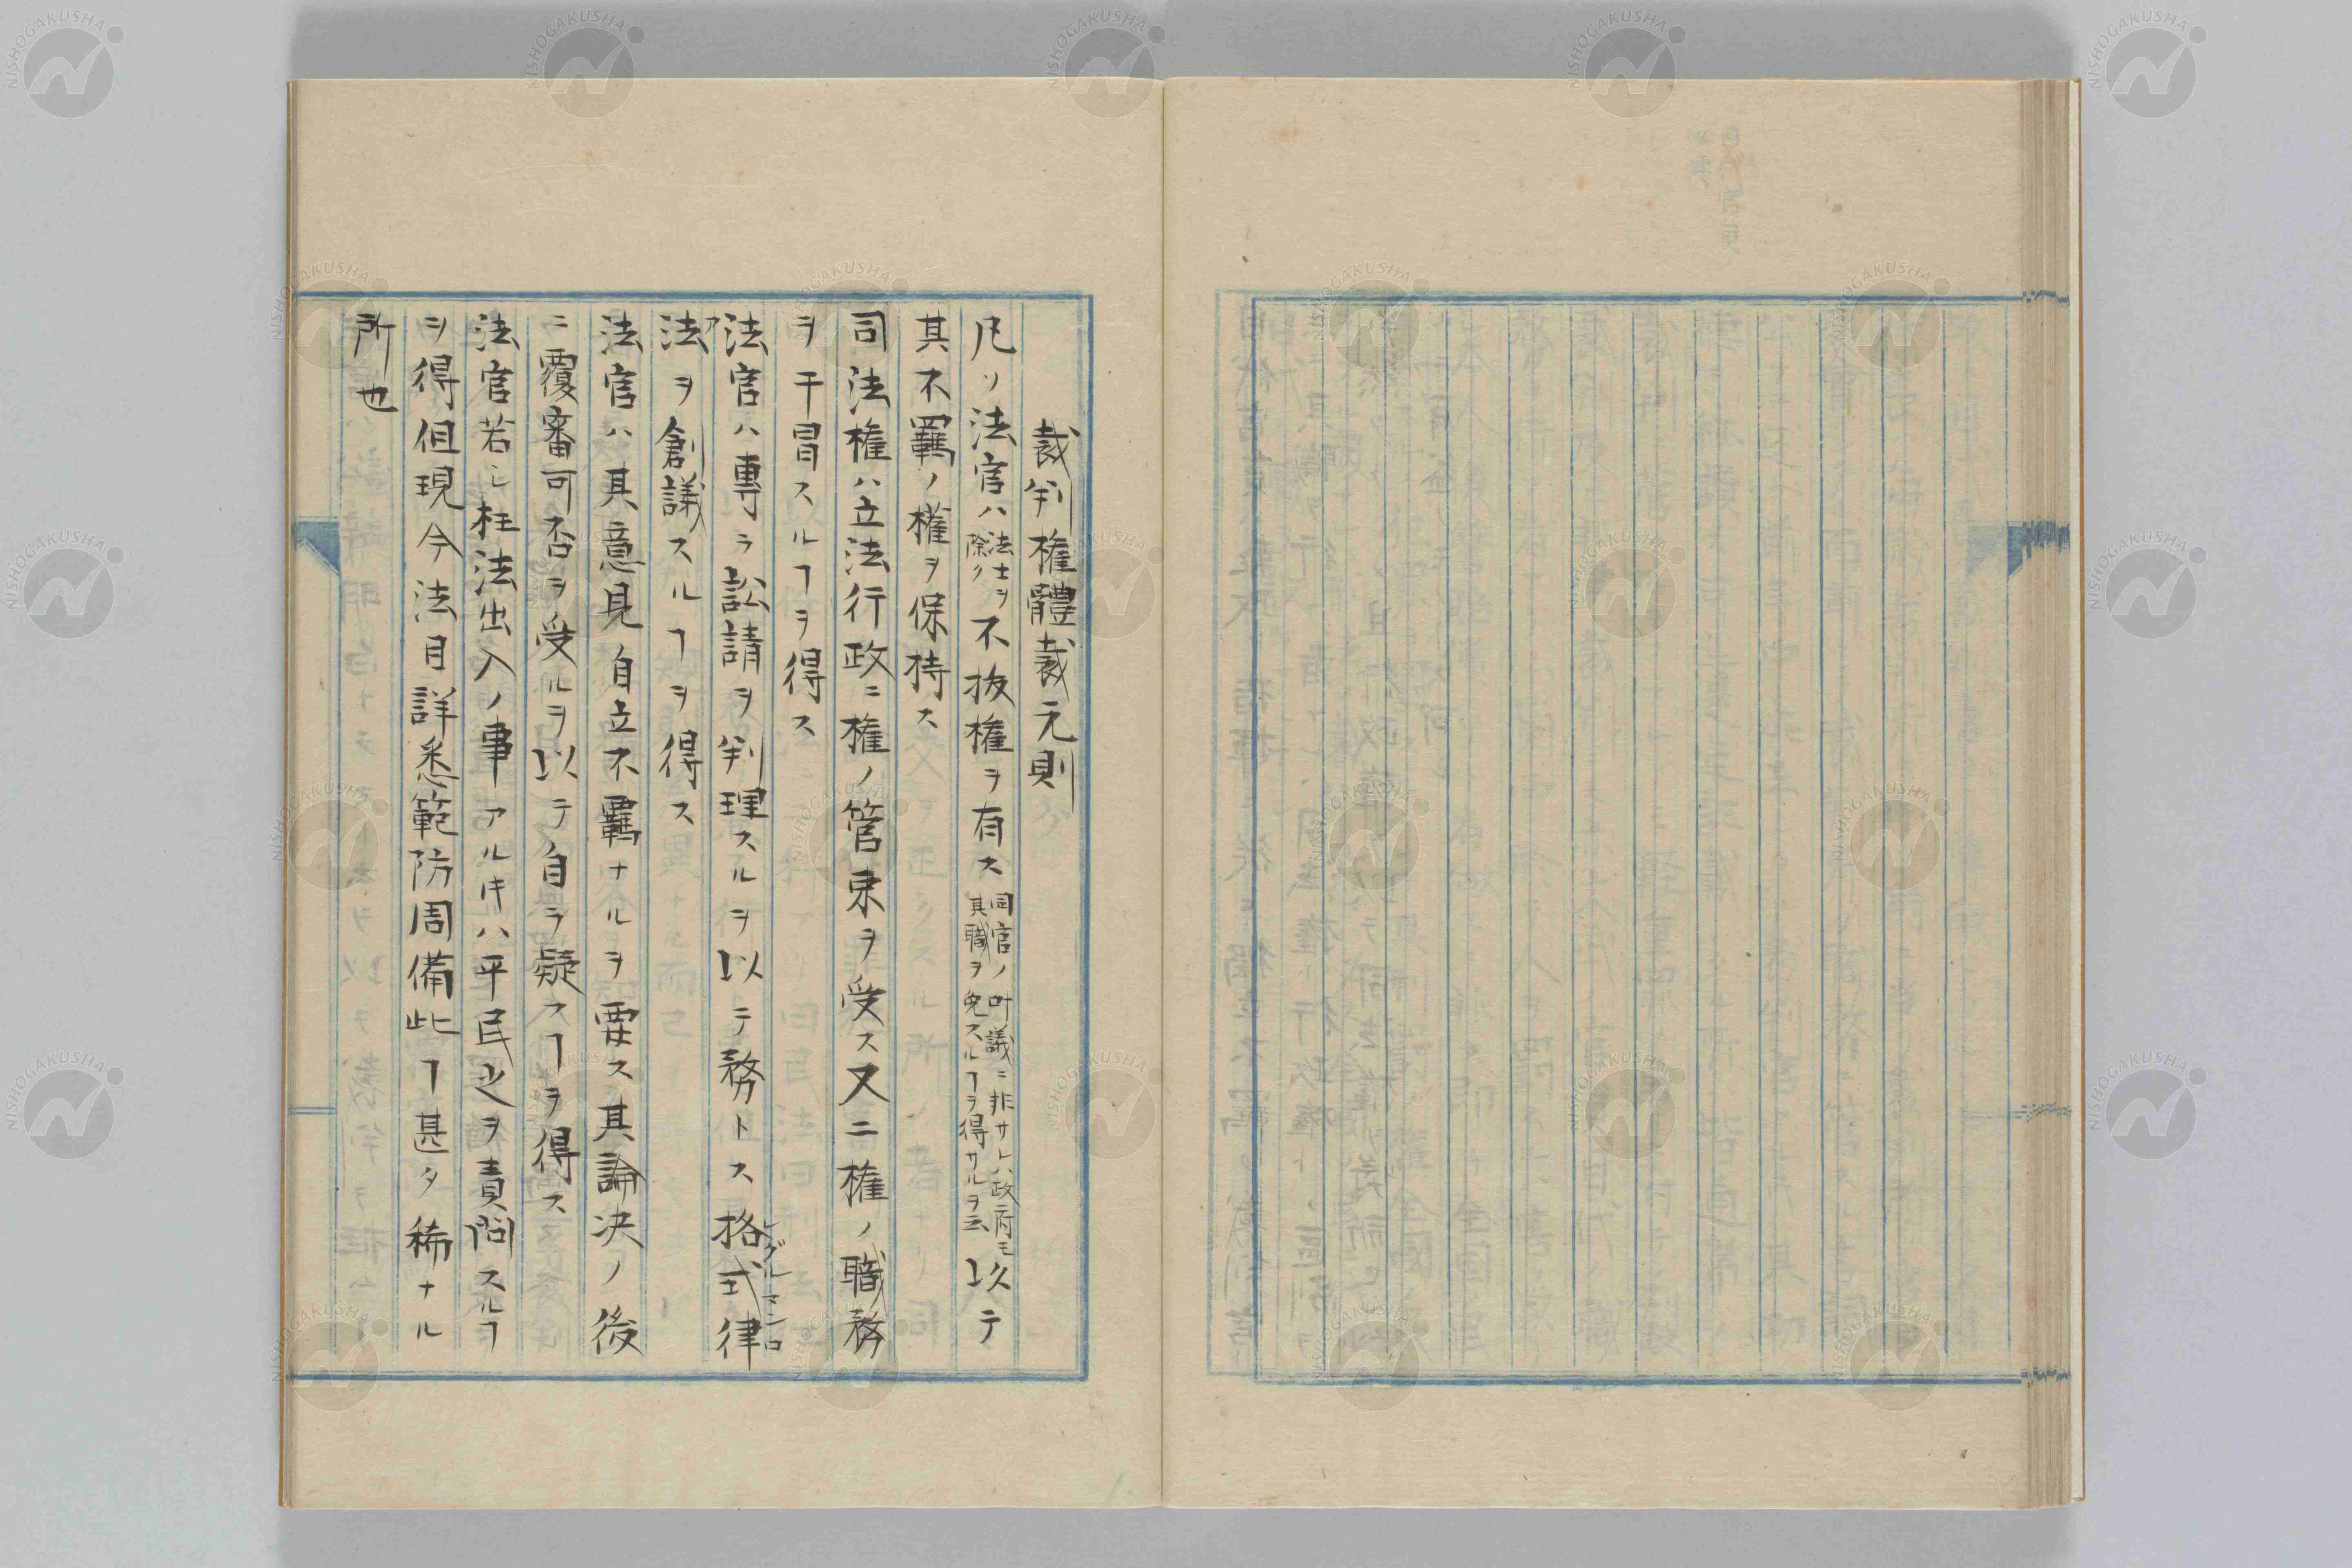 裁判權體裁元則
凡ソ法官ハ法士ヲ除ク不抜權ヲ有ス同官ノ叶議ニ非サレハ政府モ其職ヲ免スルヿヲ得サルヲ云以テ
其不羈ノ權ヲ保持ス
司法權ハ立法行政ニ權ノ管束ヲ受ス又ニ權ノ職務
ヲ干冒スルヿヲ得ス
法官ハ專ラ訟請ヲ判理スルヲ以テ務トス格式律
レグルマンロア
法ヲ創議スルヿヲ得ス
法官ハ其意見自立不羈ナルヲ要ス其論決ノ後
ニ覆審可否ヲ受ルヲ以テ自ラ疑スヿヲ得ス
法官若シ枉法出入ノ事アルキハ平民之ヲ責問スルヿ
ヲ得但現今法目詳悉範防周備此ヿ甚タ稀ナル
所也
NISHOGAKUSHA